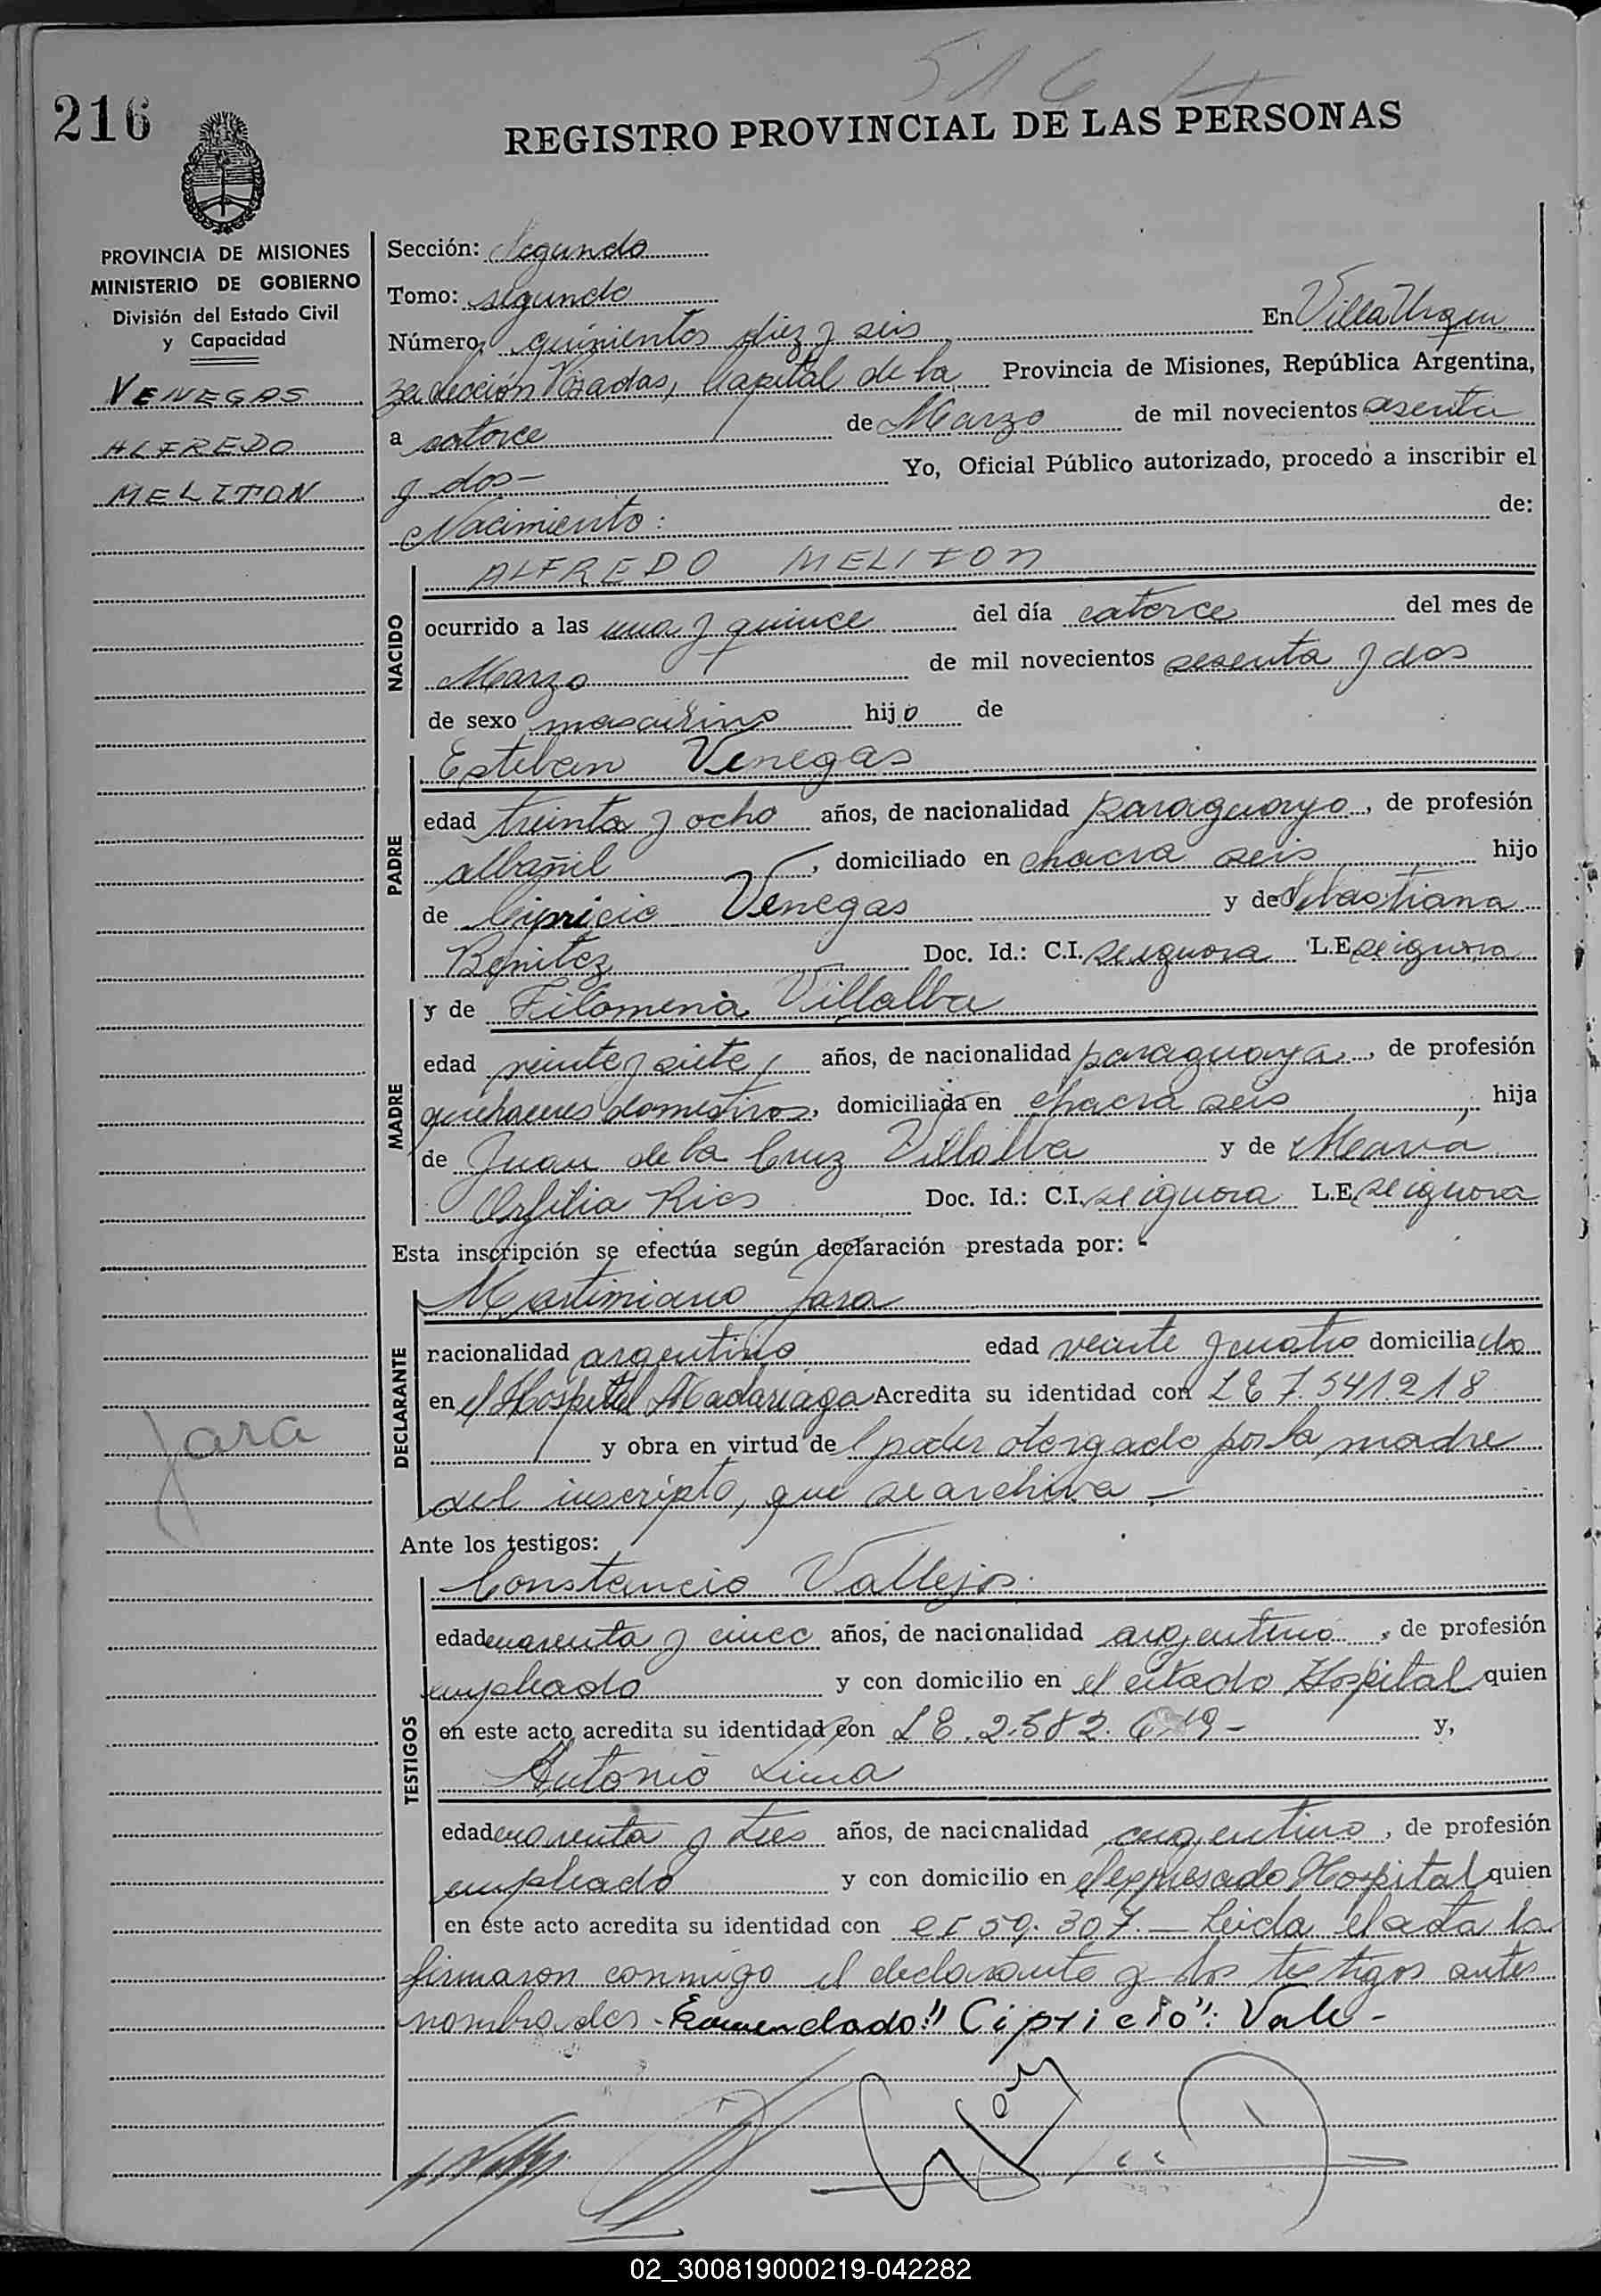 516
216
REGISTRO PROVINCIAL DE LAS PERSONAS
PROVINCIA DE MISIONES
MINISTERIO DE GOBIERNO
División del Estado Civil
y Capacidad
VENEGAS
ALFREDO
MELITON
Jara
Sección: Segundo
Tomo: segundo
Número quinientos diez y seis En Villa Urqui
za sección Posadas, Capital de la Provincia de Misiones, República Argentina,
a catorce de Marzo de mil novecientos sesenta
y dos - Yo, Oficial Público autorizado, procedo a inscribir el
Nacimiento: de:
NACIDO
ALFREDO MELITON
ocurrido a las una y quince del día catorce del mes de
Marzo de mil novecientos sesenta y dos
de sexo masculino hijo de
PADRE
Esteban Venegas
edad treinta y ocho años, de nacionalidad paraguayo, de profesión
albañil, domiciliado en chacra seis hijo
de Cipricio Venegas y de Sebastiana
Benitez Doc. Id.: C.I. se ignora L.E. se ignora
MADRE
y de Filomena Villalba
edad veinte y siete años, de nacionalidad paraguaya, de profesión
quehaceres domesticos, domiciliada en chacra seis, hija
de Juan de la Cruz Villalba y de Maria
Orfilia Rios Doc. Id.: C.I. se ignora L.E. se ignora
Esta inscripción se efectúa según declaración prestada por: -
DECLARANTE
Martimiano Jara
nacionalidad argentino edad veinte y cuatro domiciliado
en el Hospital Madariaga Acredita su identidad con LE 7.541.218
y obra en virtud del poder otorgado por la madre
del inscripto, que se archiva -
Ante los testigos:
TESTIGOS
Constancio Vallejos
edad cuarenta y cinco años, de nacionalidad argentino, de profesión
empleado y con domicilio en el citado Hospital quien
en este acto acredita su identidad con LE. 2.582. y,
Antonio Lima
edad cuarenta y tres años, de nacionalidad argentino, de profesión
empleado y con domicilio en el expresado Hospital quien
en este acto acredita su identidad con CI 59.307. - Leida el acta la
firmaron conmigo el declarante y los testigos antes
nombrados - Enmendado: "Cipricio": Vale -
02_300819000219-042282